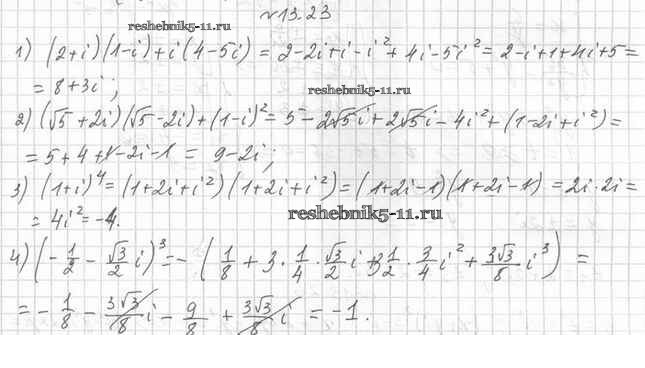 №13.23
reshebnik5-11.ru
1) (2+i)(1-i)+i(4-5i) = 2-2i+i-i²+4i-5i² = 2-i+1+4i+5=
= 8+3i;
reshebnik5-11.ru
2) (√5+2i)(√5-2i)+(1-i)² = 5-2√5i+2√5i-4i²+(1-2i+i²)=
=5+4+1-2i-1 = 9-2i;
3) (1+i)⁴=(1+2i+i²)(1+2i+i²)=(1+2i-1)(1+2i-1) = 2i·2i=
= 4i²=-4.
reshebnik5-11.ru
4) (-1/2 - √3/2 i)³ = -(1/8 + 3·1/4·√3/2 i + 3 1/2·3/4 i² + 3√3/8 i³) =
= -1/8 - 3√3/8 i - 9/8 + 3√3/8 i = -1.